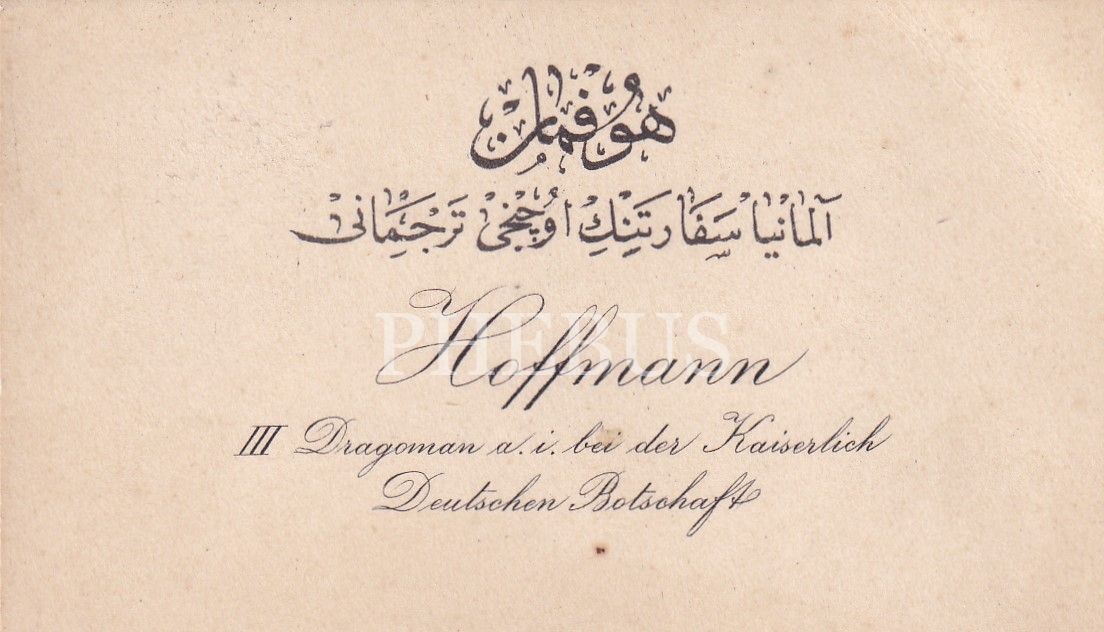 هوفمان
آلمانيا سَفَارتَنِكِ اوُچنجى تَرجَمانى
Hoffmann
PHEBUS
III Dragoman a. i. bei der Kaiserlich
Deutschen Botschaft